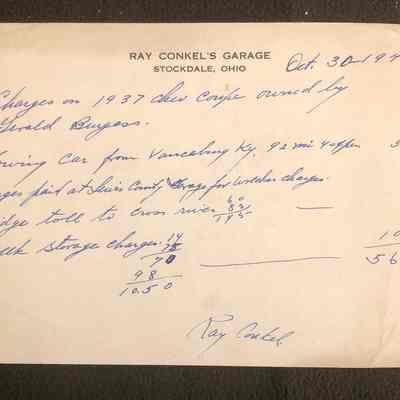 RAY CONKEL'S GARAGE
STOCKDALE, OHIO
Oct. 30-19
Charges on 1937 chev coupe owned by
Gerald Burgess.
Towing Car from Vanceburg Ky. 92 mi
paid at Lewis County Garage for wrecker charges.
toll to cross river
Storage charges
70
98
10.50
10
56
Ray Conkel